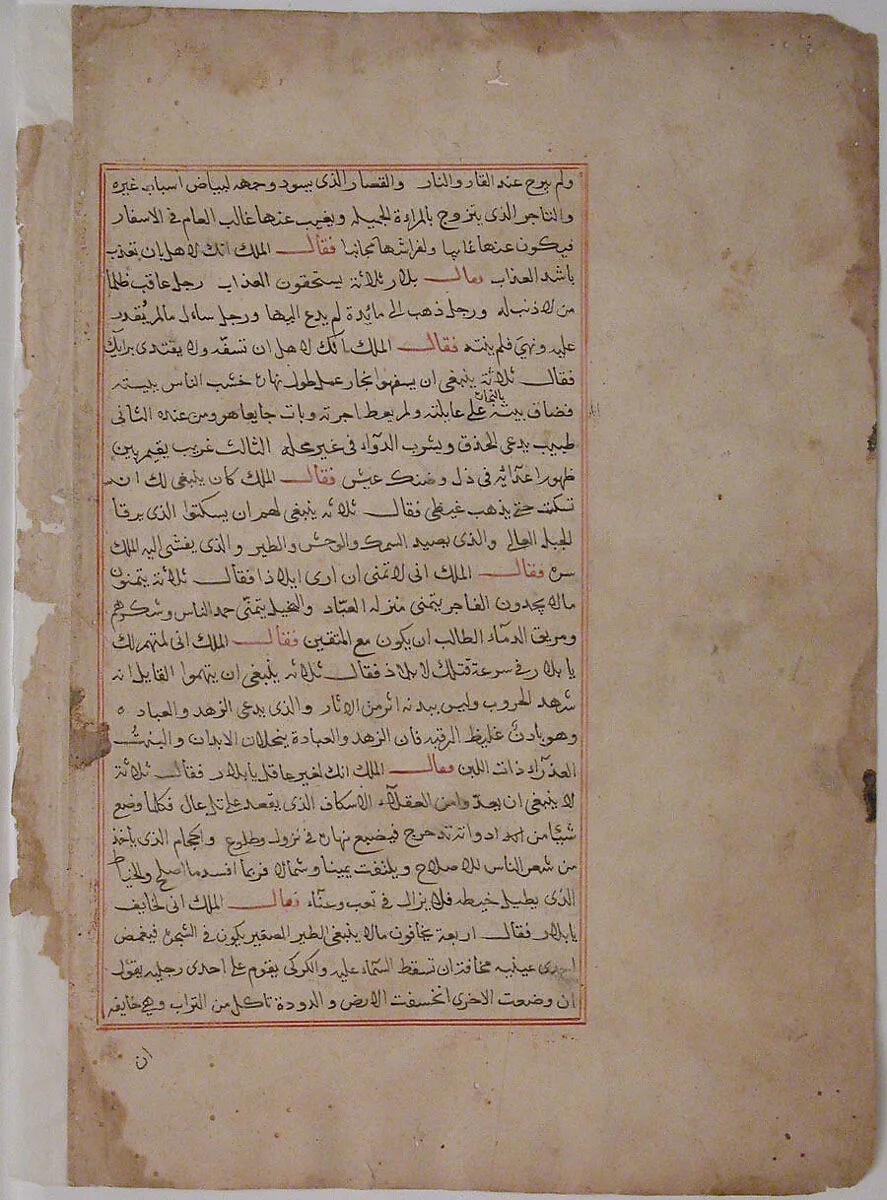 ولم يبرح عند القار والنار والقصار الذى يسود وجهه لبياض اسباب غيره
والتاجر الذى يتزوج بالمراءة الجميله ويغيب عنها غالب العام فى الاسفار
فيكون عنها غايبا ولفراشها مجانبا فقال الملك انك لاهل ان تعذب
باشد العذاب فقال بلار ثلاثة يستحقون العذاب رجل عاقب ظلما
من لا ذنب له ورجل ذهب الى مائدة لم يدع اليها ورجل ساءل ما لم يقدر
عليه ونهي فلم ينته فقال الملك انك لاهل ان تسفه ولا يقتدى برايك
فقال ثلاثة ينبغى ان يسفهوا نجار عمل طول نهاره خشب الناس ببيته
فضاق بيته بالنجارة على عايلته ولم يعط اجرته وبات جايعا هو ومن عنده الثانى
طبيب يدعى الحذق ويشرب الدوآء فى غير محله الثالث غريب يقيم بين
ظهور اعدائه فى ذل وضنك عيش فقال الملك كان ينبغى لك ان
تسكت حتى يذهب غيظى فقال ثلاثه ينبغى لهم ان يسكتوا الذى يرقا
الجبل العالى والذى يصيد السمك والوحش والطير والذى يفشى اليه الملك
سره فقال الملك انى لا تمنى ان ارى ايلاذا فقال ثلاثة يتمنون
ما لا يجدون الفاجر يتمنى منزله العباد والبخيل يتمنى حمد الناس وشكرهم
ومريق الدمآء الطالب ان يكون مع المتقين فقال الملك انى لمتهم لك
يا بلار فى سرعة قتلك لايلاذ فقال ثلاثه ينبغى ان يتهموا القايل انه
شهد الحروب وليس ببدنه اثر من الاثار والذى يدعى الزهد والعباد ه
وهو بادن غليظ الرقبه فان الزهد والعبادة ينحلان الابدان والبنت
العذرآء ذات اللبن فقال الملك انك لغير عاقل يا بلار فقال ثلاثة
لا ينبغى ان يعدوا من العقلآء الاسكاف الذى يقعد على تل عال فكلما وضع
شيئا من ادواته تدحرج فيضيع نهاره فى نزول وطلوع والحجام الذى ياخذ
من شعر الناس للاصلاح ويلتفت يمينا وشمالا فربما افسد ما اصلح والخياط
الذى يطيل خيطه فلا يزال فى تعب وعنآء فقال الملك انى لخايف
يا بلار فقال اربعة يخافون مالا ينبغى الطير الصغير يكون فى الشجره فيغمض
احدى عينيه مخافة ان تسقط السمآء عليه والكركى يقوم على احدى رجليه يقول
ان وضعت الاخرى انخسفت الارض والدودة تاكل من التراب وهى خايفه
ان